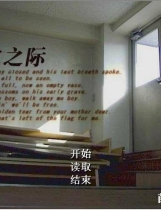 之际
ey closed and his last breath spoke.
ll to be seen
full, now an empty vase.
ossoms on his early grave.
n boy, walk away me boy.
n we'll be free.
olden tear from your mother dear
at's left of the flag for me
开始
读取
结束